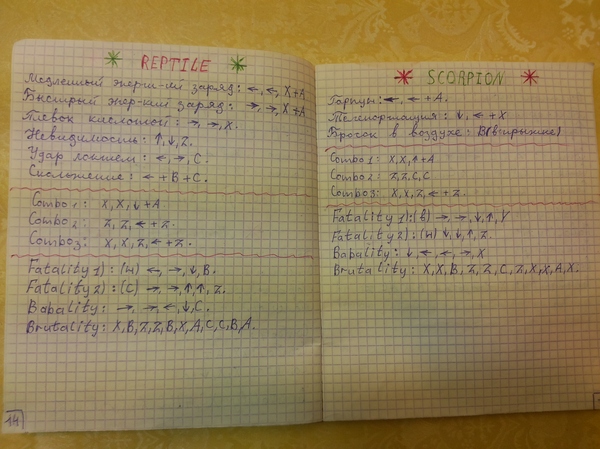 REPTILE
Медленный энерг-ий заряд: ←, ←, X+A
Быстрый энер-кий заряд: →, →, X+A
Плевок кислотой: →, →, X.
Невидимость: ↑, ↓, Z.
Удар локтем: ←, →, C.
Скольжение: ← + B + C.
Combo 1: X, X, ↓ + A
Combo 2: Z, Z, ← + Z.
Combo 3: X, X, Z, ← + Z.
Fatality 1): (н) ←, →, ↓, B.
Fatality 2): (C) →, →, ↑, ↑, Z.
Babality: →, →, ←, ↓, C.
Brutality: X, B, Z, Z, B, X, A, C, C, B, A.
14
SCORPION
Гарпун: ←, ← + A.
Телепортация: ↓, ← + X
Бросок в воздухе: B (в прыжке)
Combo 1: X, X, ↑ + A
Combo 2: Z, Z, C, C
Combo 3: X, X, Z, ← + Z.
Fatality 1): (B) →, →, ↓, ↑, Y
Fatality 2): (н) ↓, ↓, ↑, Z.
Babality: ↓, ←, ←, →, X
Brutality: X, X, B, Z, Z, C, Z, X, X, A, X.